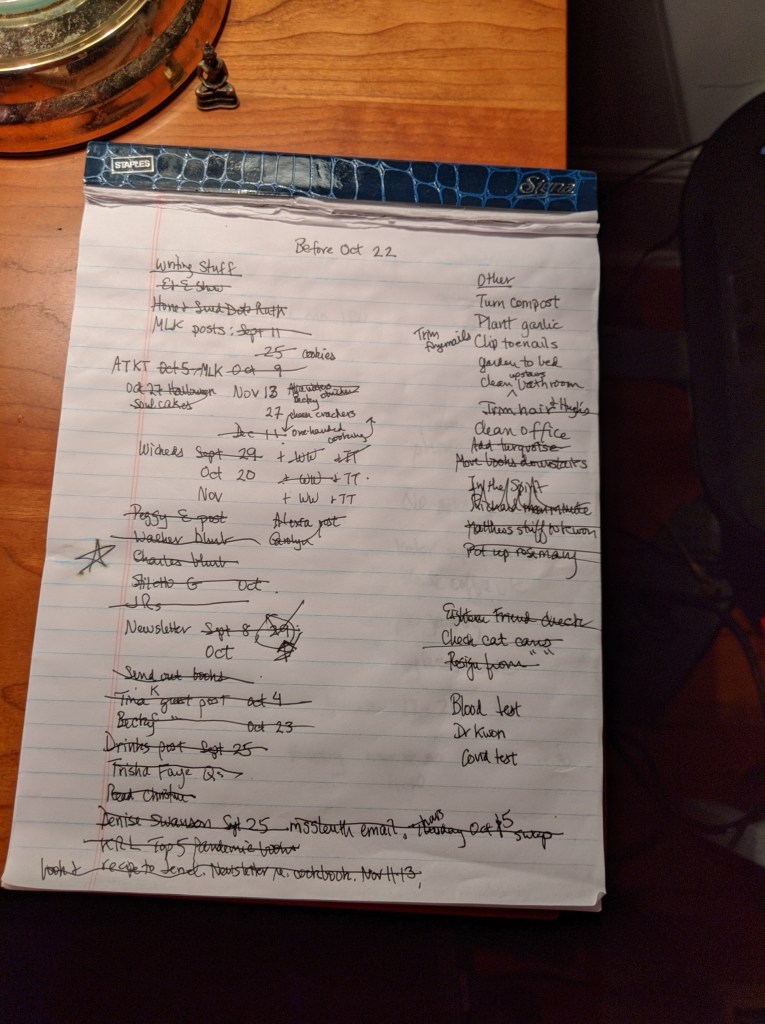 STAPLES
Signa
Before Oct 22
Writing Stuff
E+E Show
MLK posts: Sept 11
25 cookies
ATKT Oct 5/MLK Oct 9
Oct 27 Halloween Nov 13
soul cakes
27 cheese crackers
Dec 11: one-handed cooking
Wickeds Sept 29 + WW + TT
Oct 20 + WW + TT.
Nov + WW + TT
Peggy E post
Walker blurb Carolyn
Charles blurb
Stiletto G Oct.
JRs
Newsletter Sept 8, 29.
Oct
Send out books
Tina K guest post Oct 4
Becky " Oct 23
Drinks post Sept 25
Trisha Faye Qs
Read Christine
Denise Swanson Sept 25. missleuth email. Thurs Oct 15 swap
KRL Top 5 pandemic books
book & recipe to send. Newsletter re. cookbook. Nov 11-13,
Other
Turn compost
Plant garlic
Trim fingernails
Clip toenails
garden to bed
clean upstairs bathroom
Trim hair + Hugh's
Clean office
Add turquoise
Move books downstairs
In the Spirit
Richard
Matthews stuff to Kwon
Pot up rosemary
Eighteen Friend check
Check cat cans
Resign from " "
Blood test
Dr Kwon
Covid test